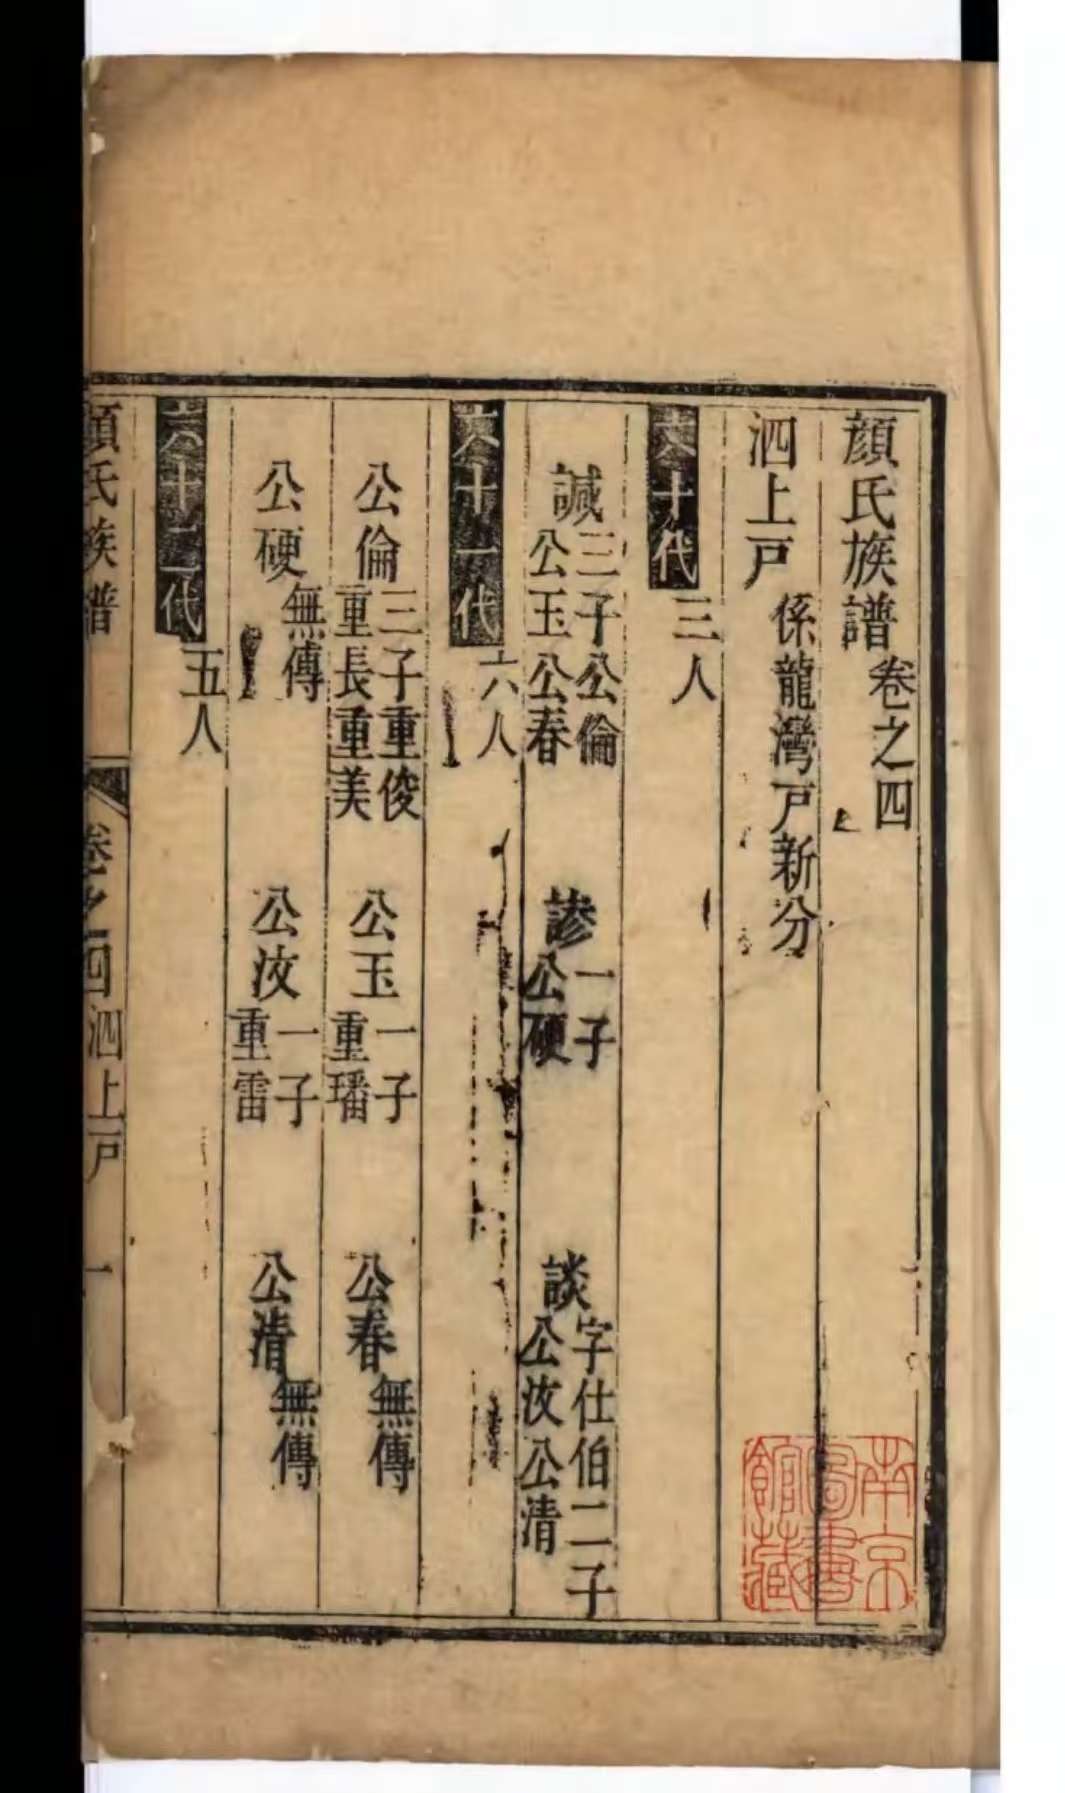 顏氏族譜卷之四
泗上戸係龍灣戸新分
六十代三人
諴三子公倫公玉公春
諺一子公硬
談字仕伯二子公汝公清
六十一代六人
公倫三子重俊重長重美
公玉一子重璠
公春無傳
公硬無傳
公汝一子重雷
公清無傳
六十二代五人
顏氏族譜
卷之四
泗上戸
一
南京
圖書
館藏